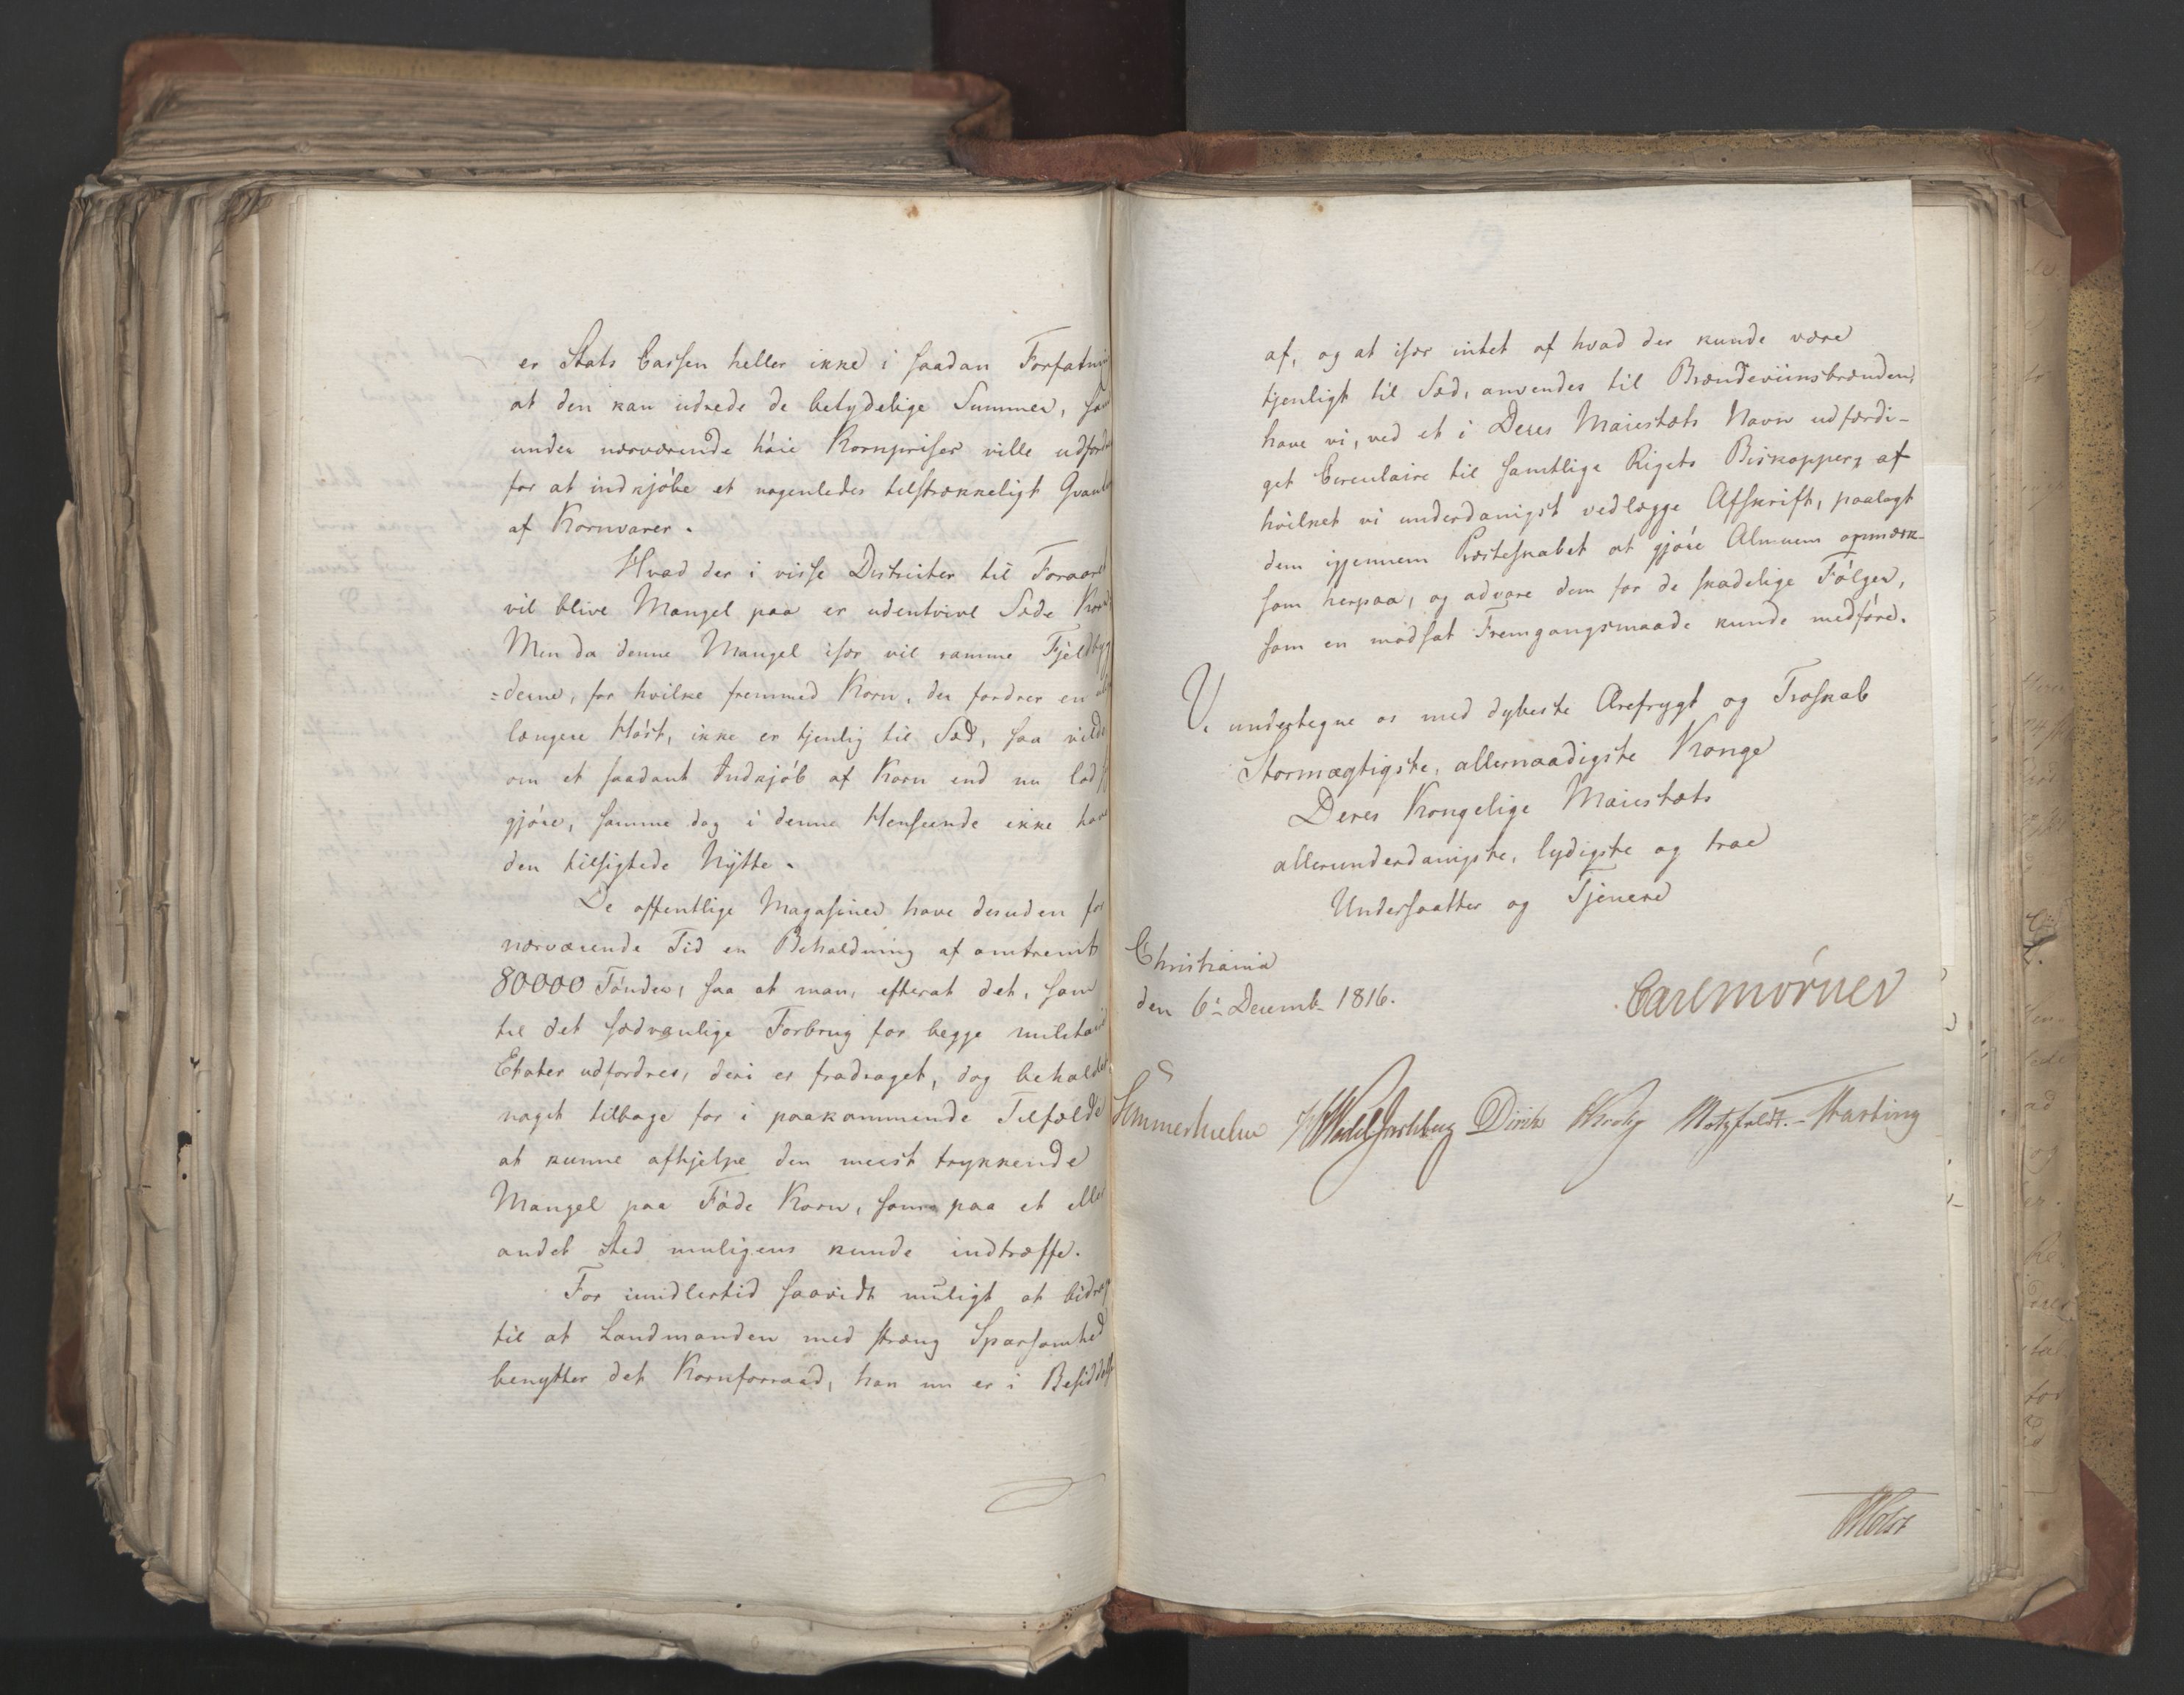 er Stats Cassen heller ikke i saadan Forfatni
at den kan udrede de betydelige Summer, som
under nærværende høie Kornpriser ville udfor
for at indkjøbe et nogenledes tilstrækkeligt Qvant
af Kornvarer.
Hvad der i visse Districter til Foraaret
vil blive Mangel paa er udentvivl Sæde Korn
Men da denne Mangel især vil ramme Fjeldbyg
=derne, for hvilke fremmed Korn, der fordrer en
længere Høst, ikke er tjenlig til Sæd, saa vilde
om et saadant Indkjøb af Korn end nu lod
gjøre, samme dog i denne Henseende ikke have
den tilsigtede Nytte.
De offentlige Magasiner have desuden for
nærværende Tid en Beholdning af omtrent
80000 Tønder, saa at man, efterat det, som
til det sædvanlige Forbrug for begge militair
Etater udfordres, deri er fradraget, dog beholder
noget tilbage for i paakommende Tilfælde
at kunne afhjelpe den meest trykkende
Mangel paa Føde Korn, som paa et eller
andet Sted muligens kunde indtræffe.
For imidlertid saavidt muligt at bidrag
til at Landmanden med stræng Sparsomhed
benytter det Kornforraad, han nu er i Besiddelse
af, og at især intet af hvad der kunde være
tjenligt til Sæd, anvendes til Brændeviinsbrænden,
have vi, ved et i Deres Maiestæts Navn udfærdi-
get Circulaire til samtlige Rigets Biskopper, af
hvilket vi underdanigst vedlægge Afskrift, paalagt
dem igjennem Præsteskabet at gjøre Almuen opmærk-
som herpaa, og advare dem for de skadelige Følger,
som en modsat Fremgangsmaade kunde medføre.
Vi undertegne os med dybeste Ærefrygt og Troskab
Stormægtigste, allernaadigste Konge
Deres Kongelige Maiestæts
allerunderdanigste, lydigste og troe
Undersaatter og Tjenere
Christiania
den 6te Decemb. 1816.
Carl Mörner
Sommerhielm HWedel Jarlsberg Diriks Krohg Motzfeldt. Fasting
Holst